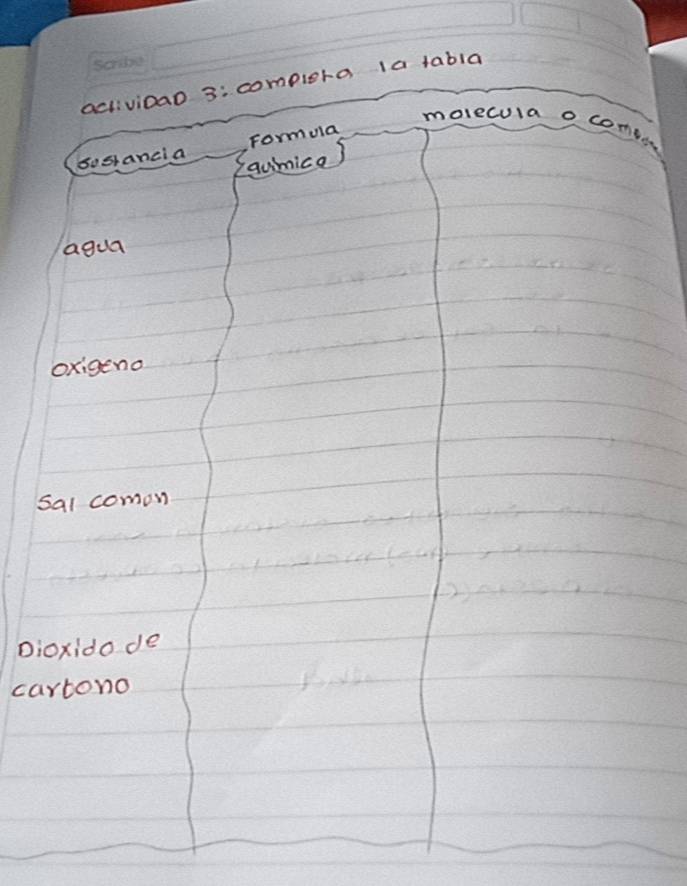 Scribe
actividad 3: completa la tabla
Sustancia Formula quimica molecula o
agua
oxigeno
Sal comon
Dioxido de
carbono